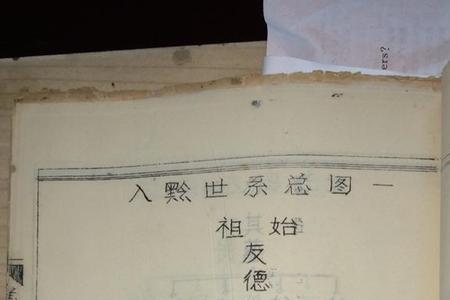 入黔世系总图一
始祖
友德
ers?